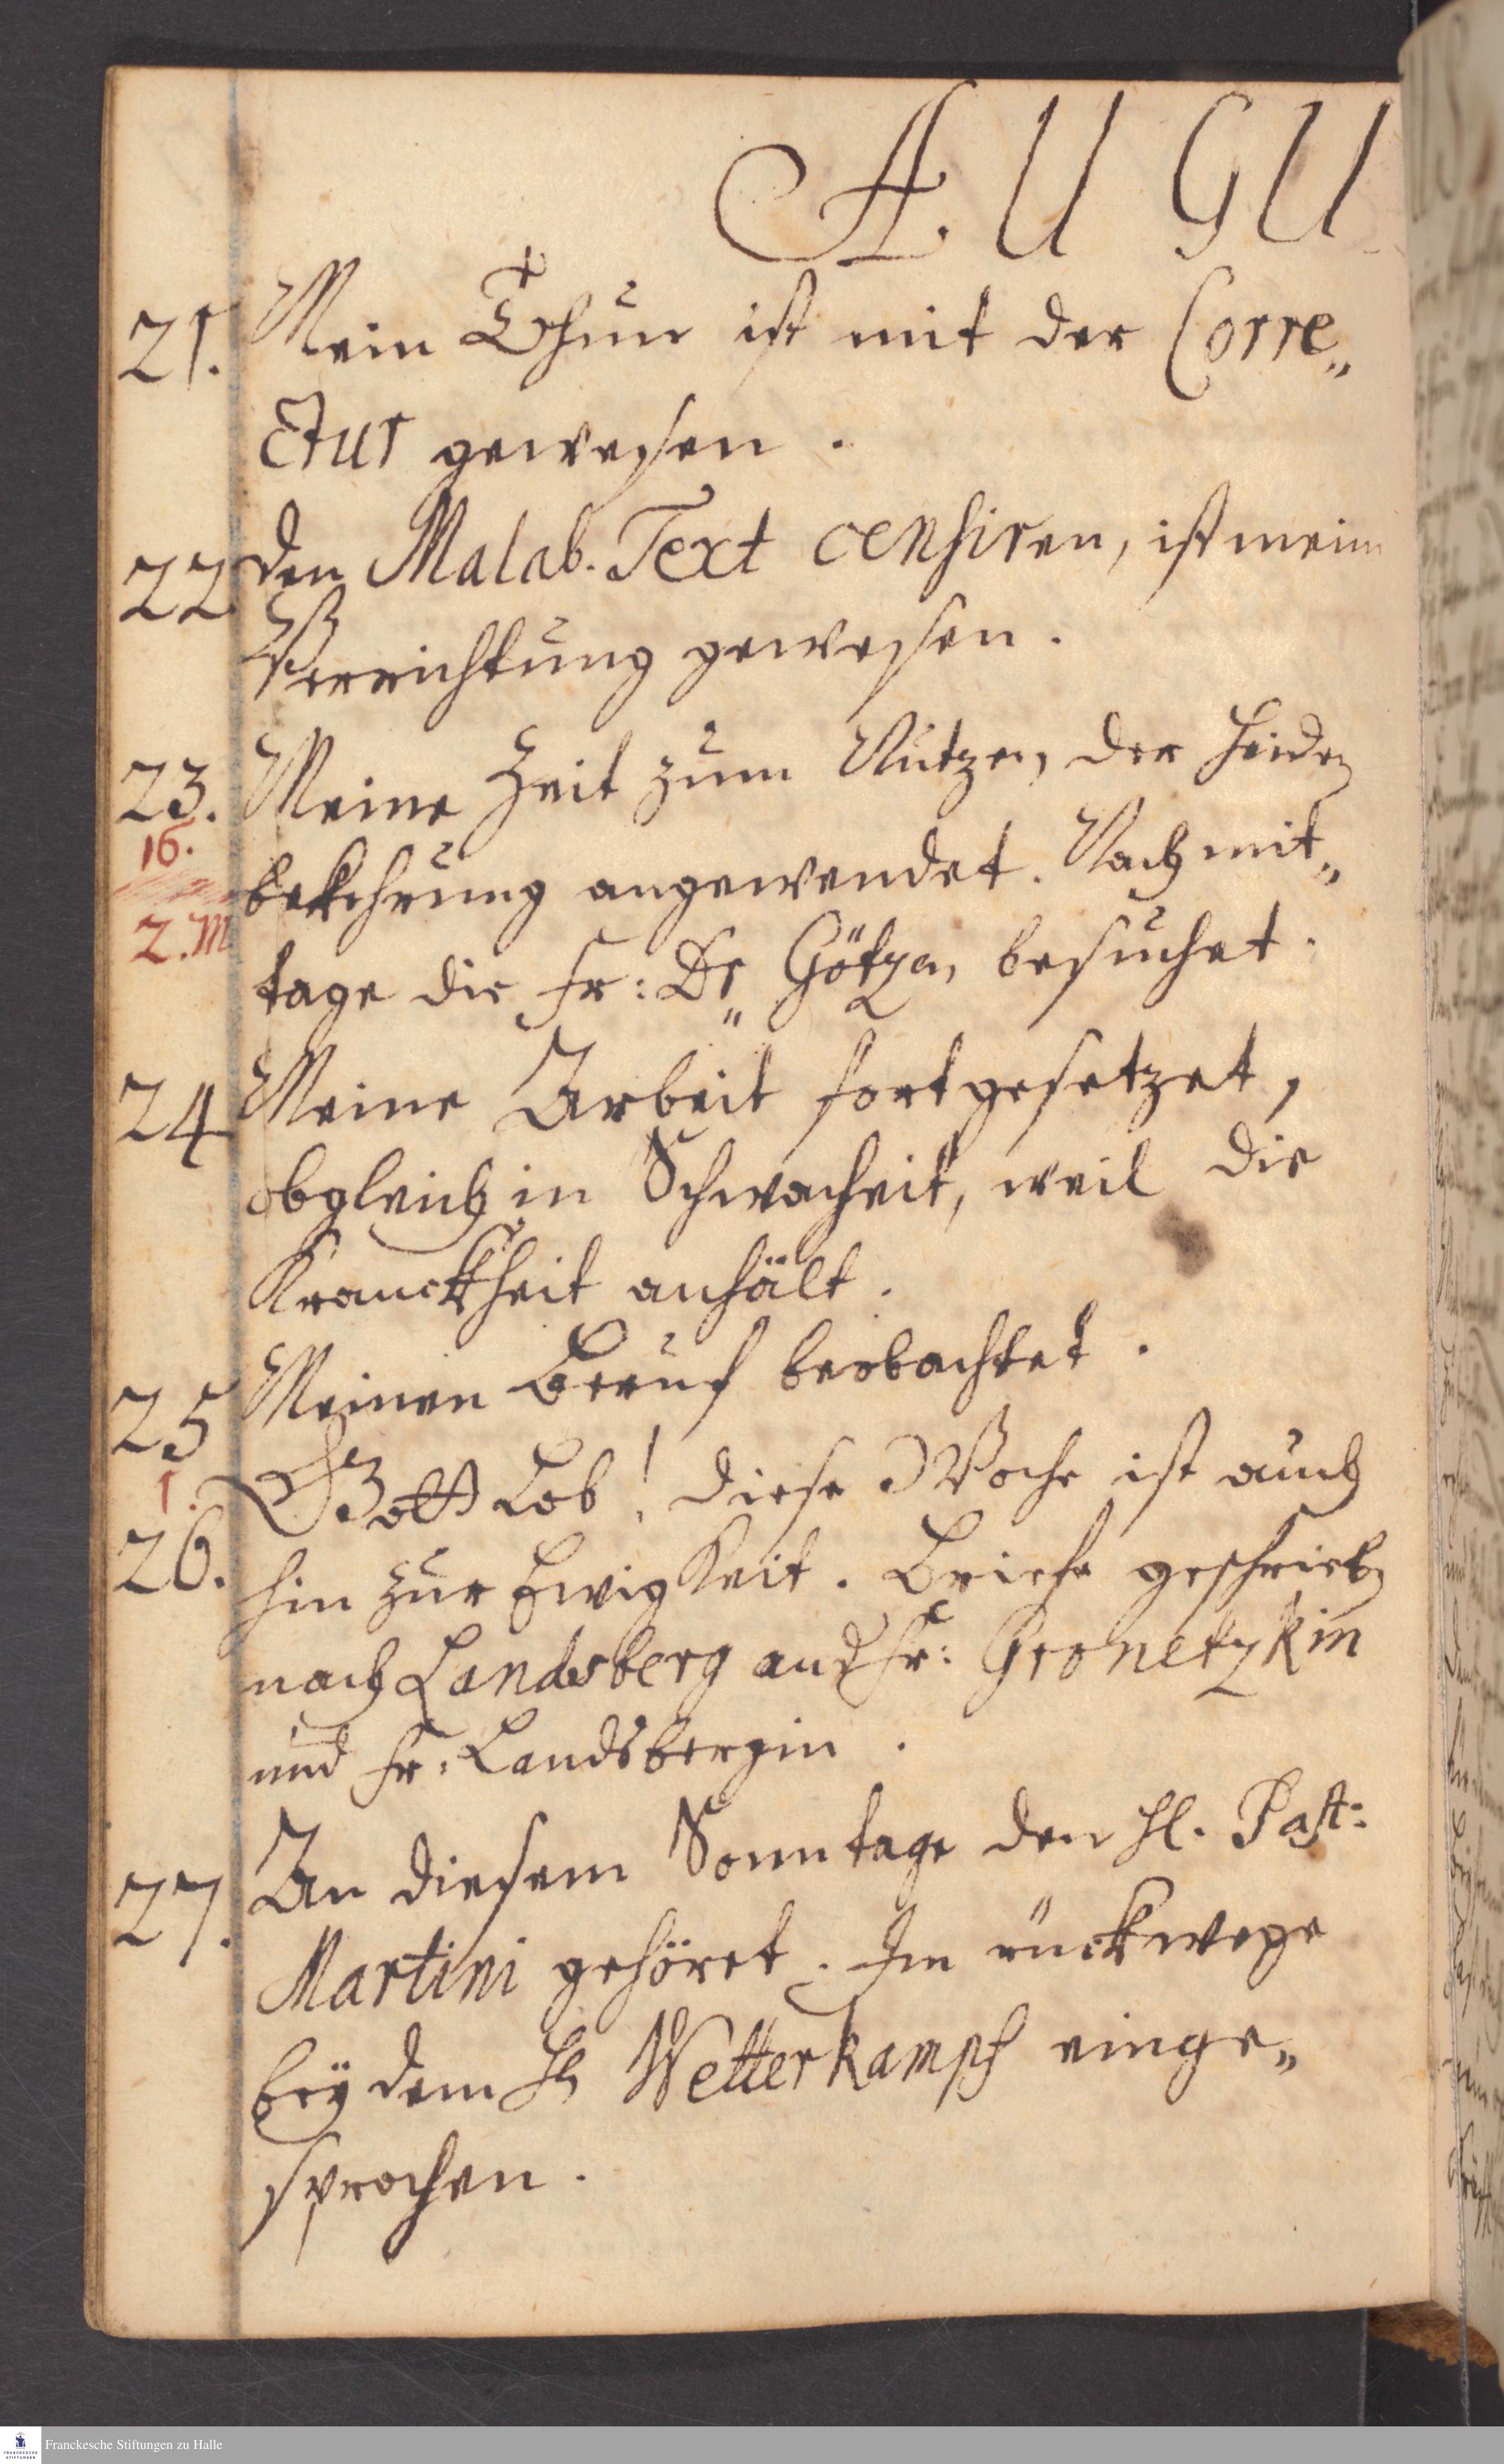 A U G U
21. Mein Thun ist mit der Corre„
ctur gewesen.
22. den Malab. Text censiren, ist mein
Verrichtung gewesen.
23. Meine Zeit zum Nutzen der Heiden
16.
bekehrung angewendet. Nach mit„
2. M
tage die Fr: Dr„ Götzen besuchet.
24 Meine Arbeit fortgesetzet,
obgleich in Schwacheit, weil die
Kranckheit anhält.
25 Meinen Beruf beobachtet.
1.
26. Gott Lob! diese Woche ist auch
hin zur Ewigkeit. Briefe geschrieben
nach Landsberg an d Fr: Gronetzkin
und Fr: Landsbergin.
27. An diesem Sonntage den Hl. Past:
Martini gehöret. Im rückwege
bey dem H Wetterkampf einge„
sprochen.
Franckesche Stiftungen zu Halle